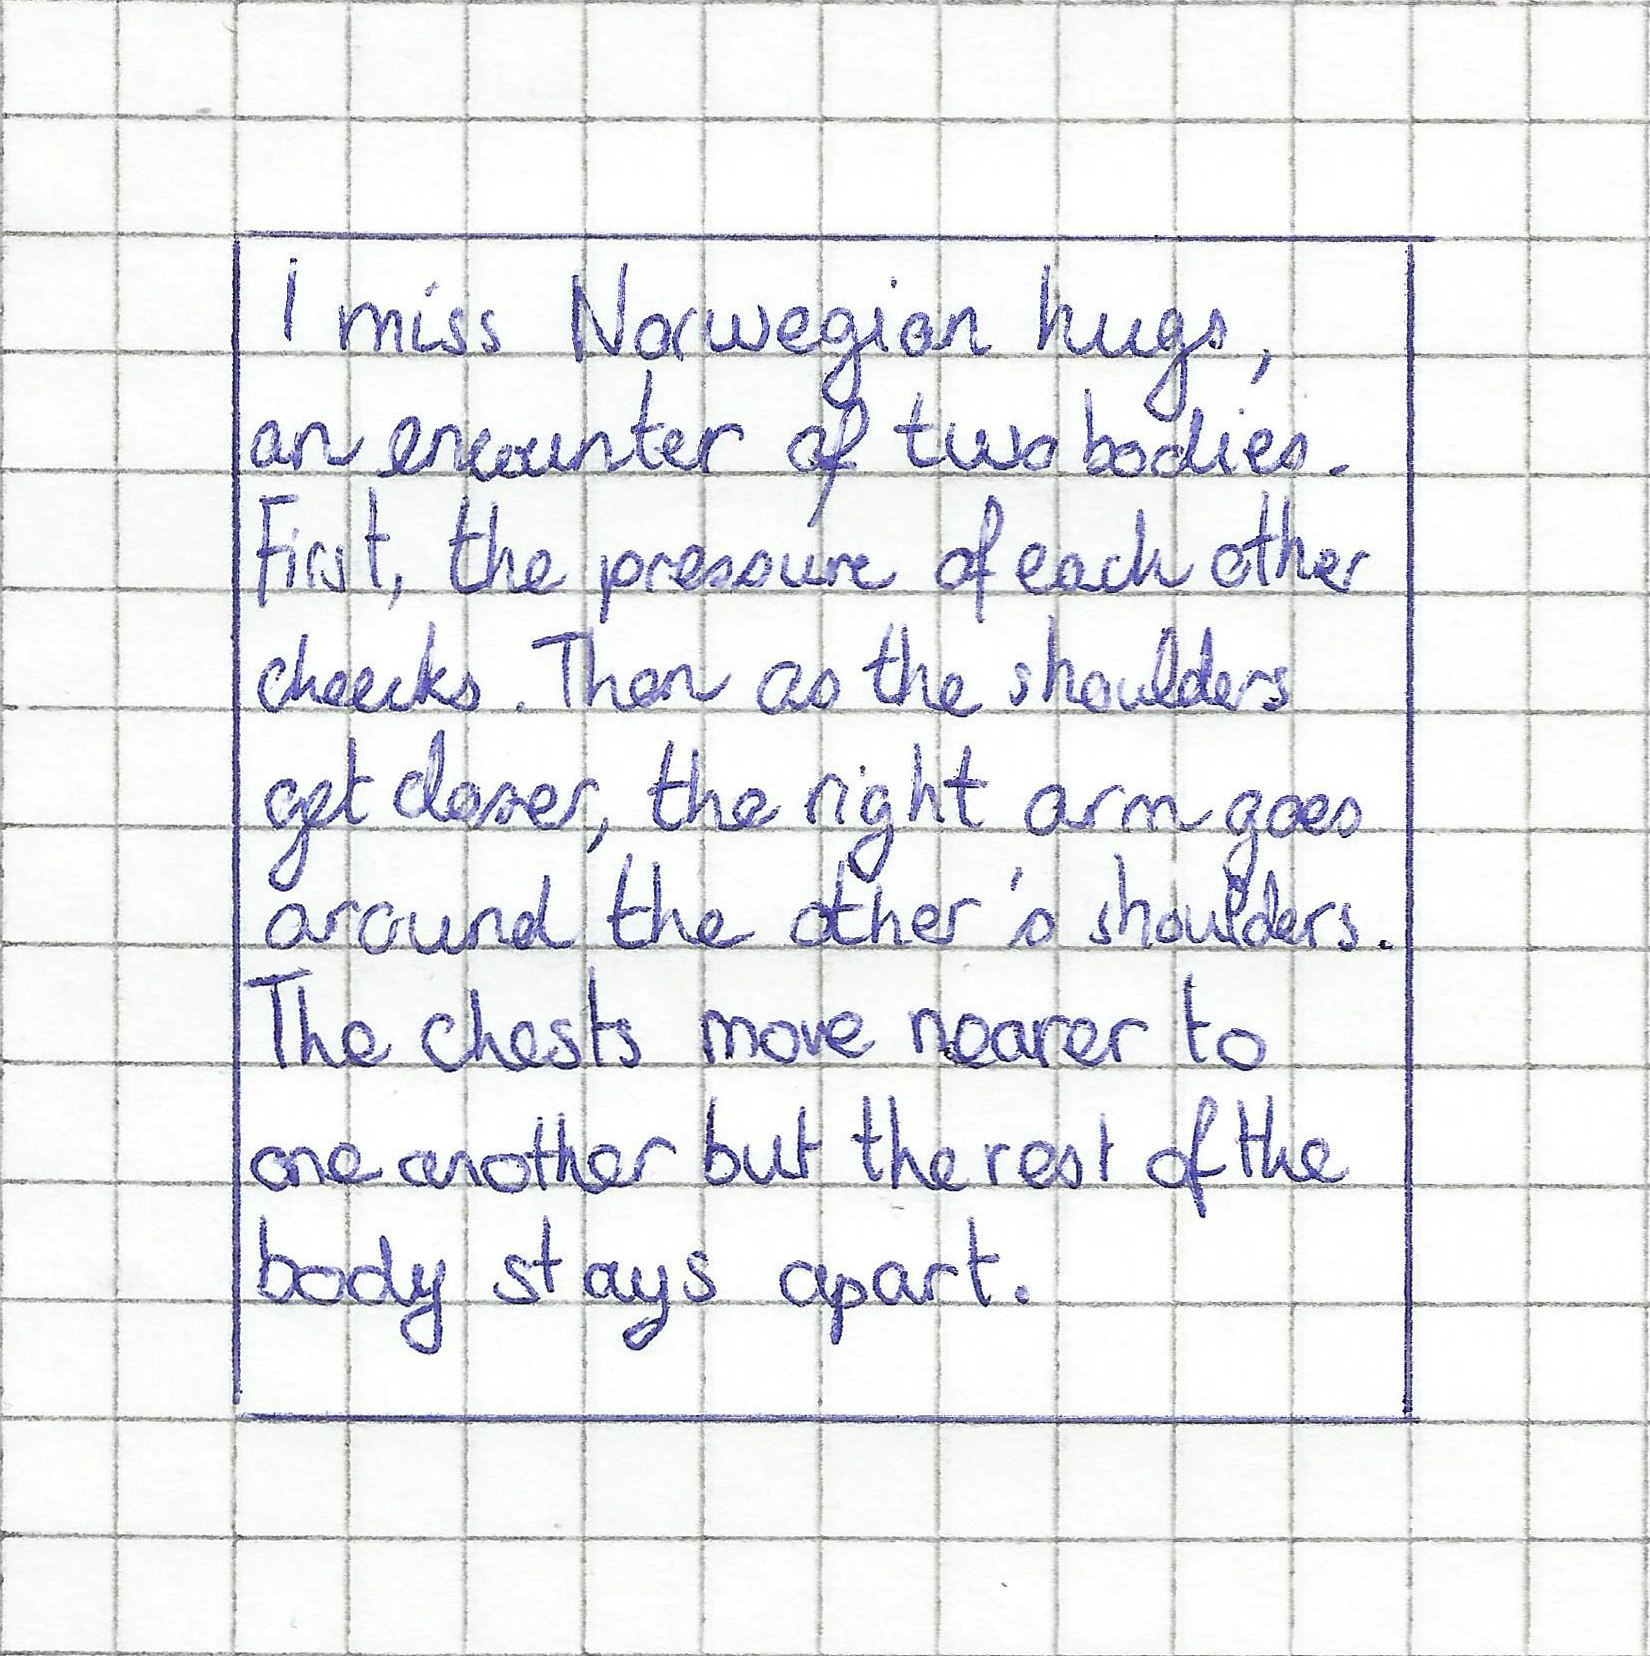 I miss Norwegian hugs,
an encounter of two bodies.
First, the pressure of each other
cheecks. Then as the shoulders
get closer, the right arm goes
around the other's shoulders.
The chests move nearer to
one another but the rest of the
body stays apart.